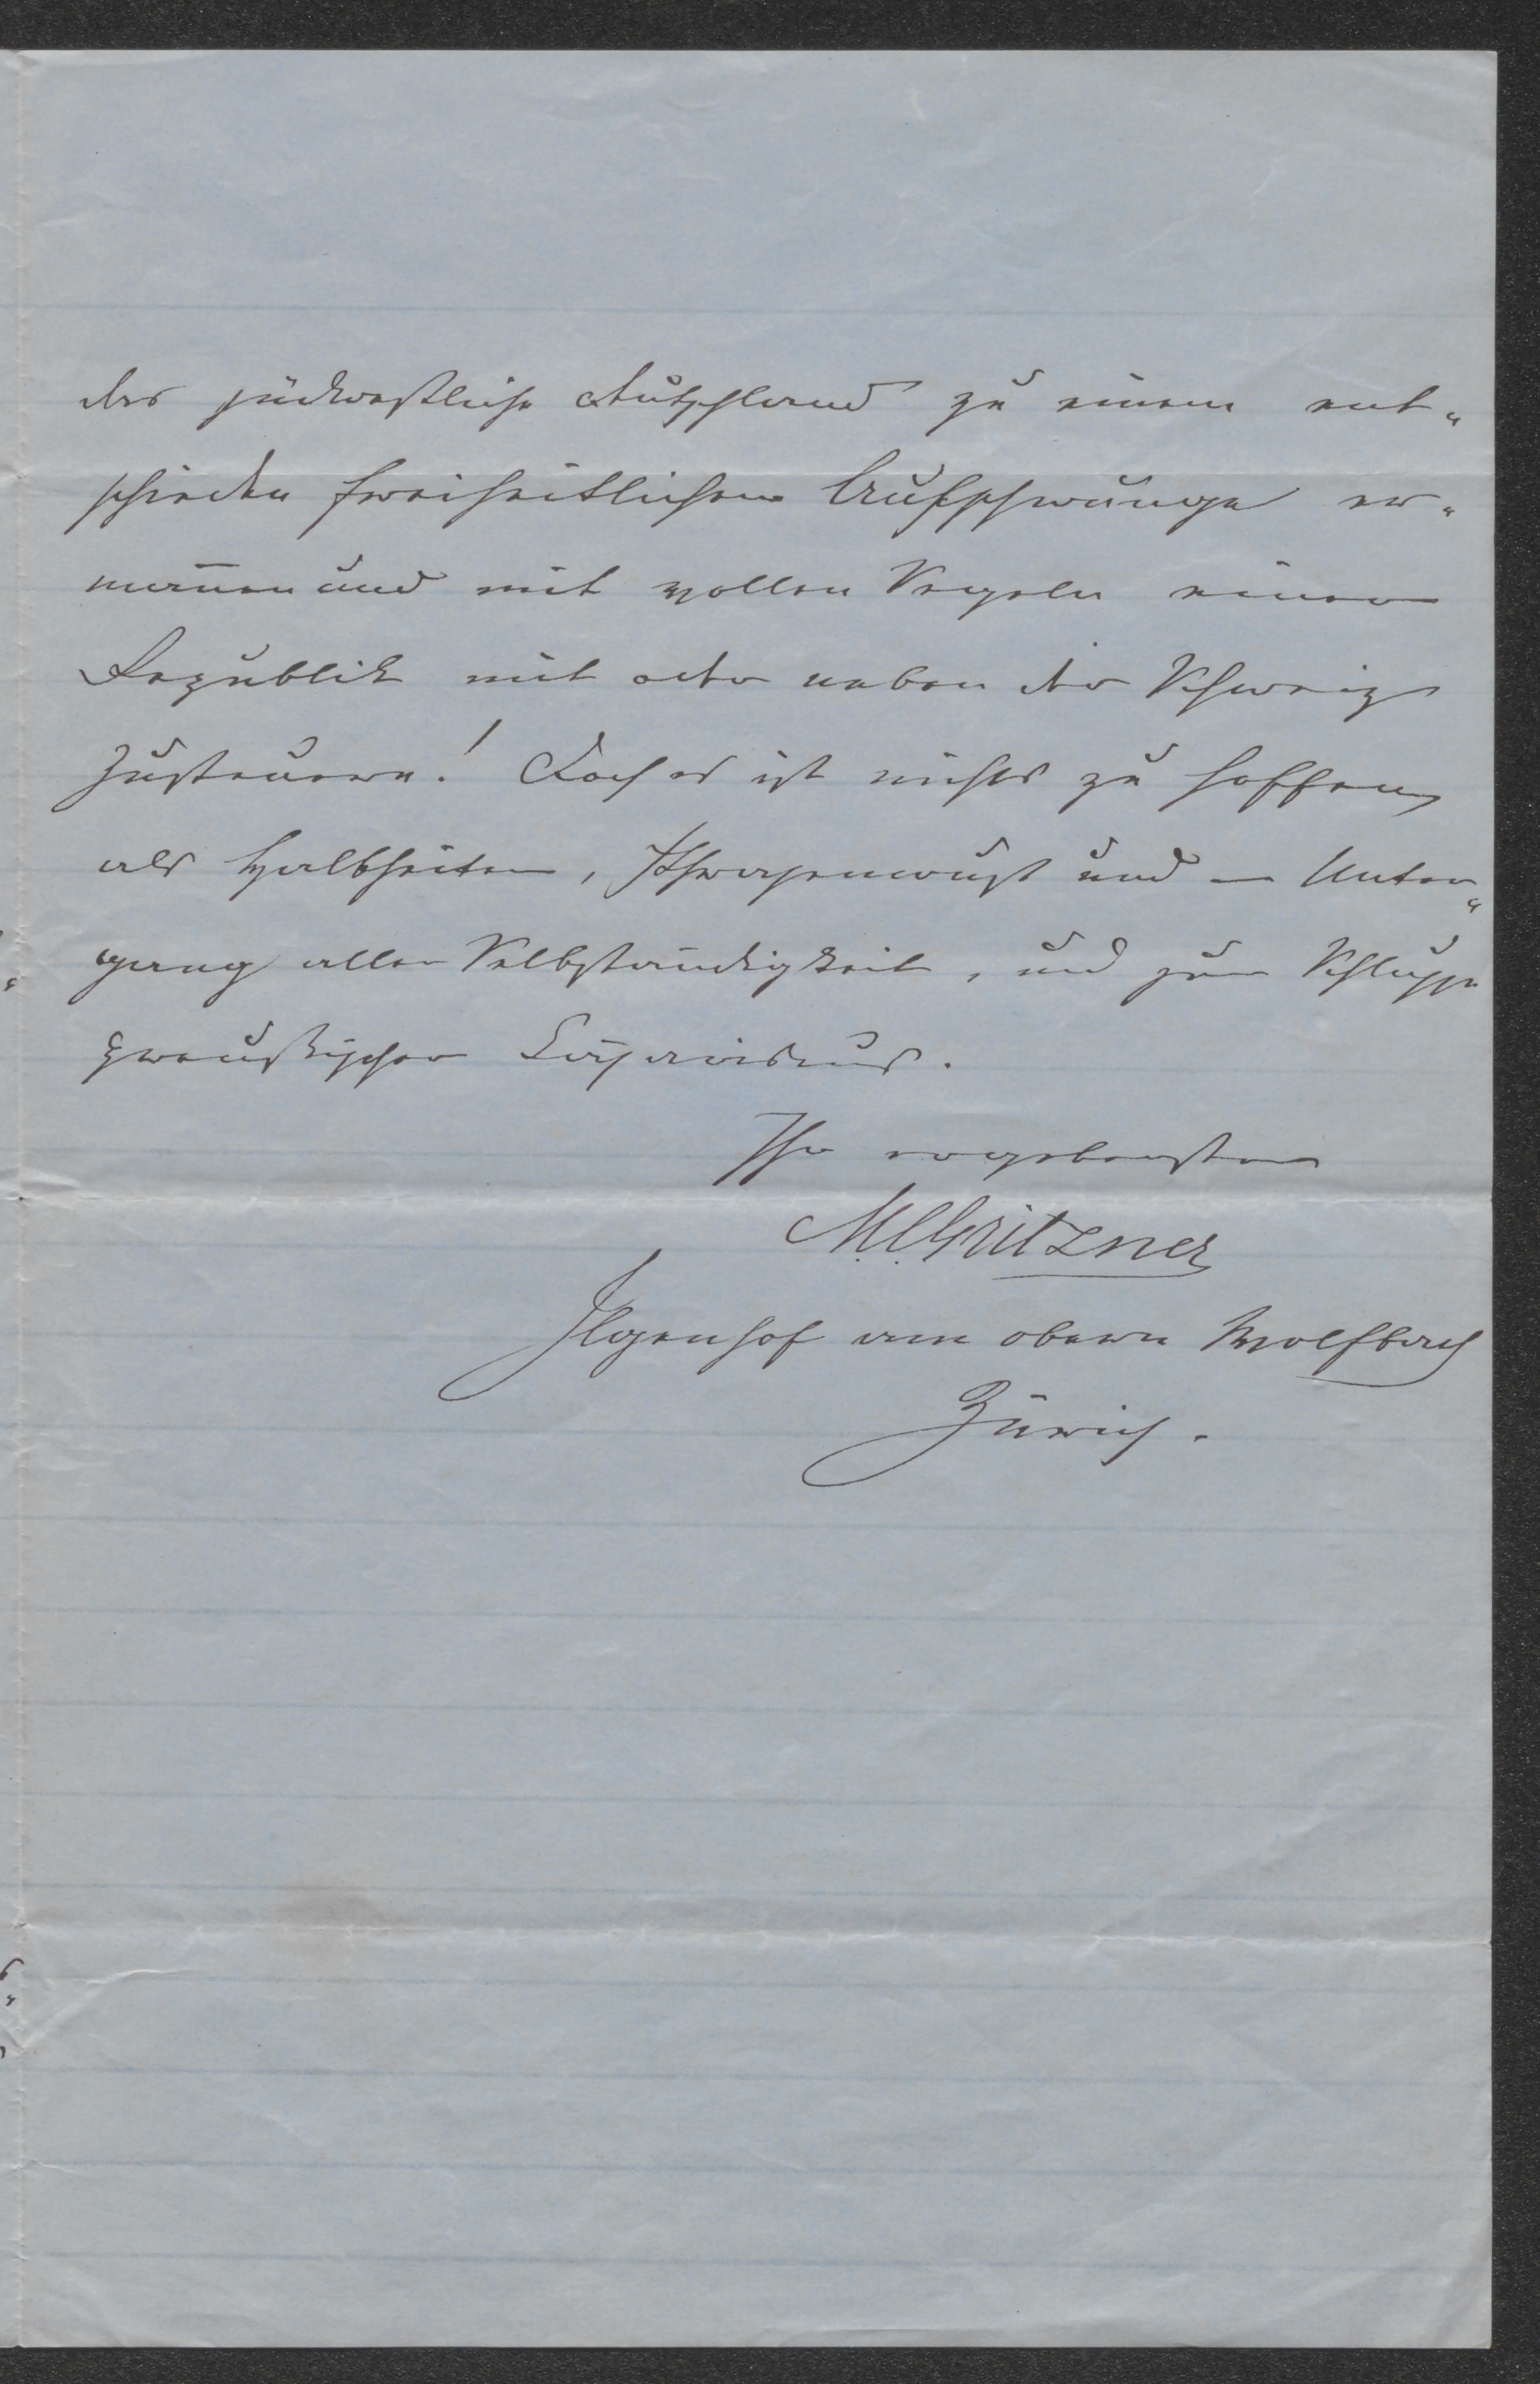 das südwestliche Deutschland zu einem ent„
schieden freiheitlichem Aufschwunge er„
mannen und mit vollen Segeln einer
Republik mit oder neben der Schweiz
zusteuern! Doch es ist nichts zu hoffen,
als Halbheiten, Phrasenwust und — Unter„
gang aller Selbständigkeit, und zum Schlusse
preußischer Cäsarismus.
Ihr ergebenster
M.C. Gritzner
Ilgenhof am obern Wolfbach
Zürich.